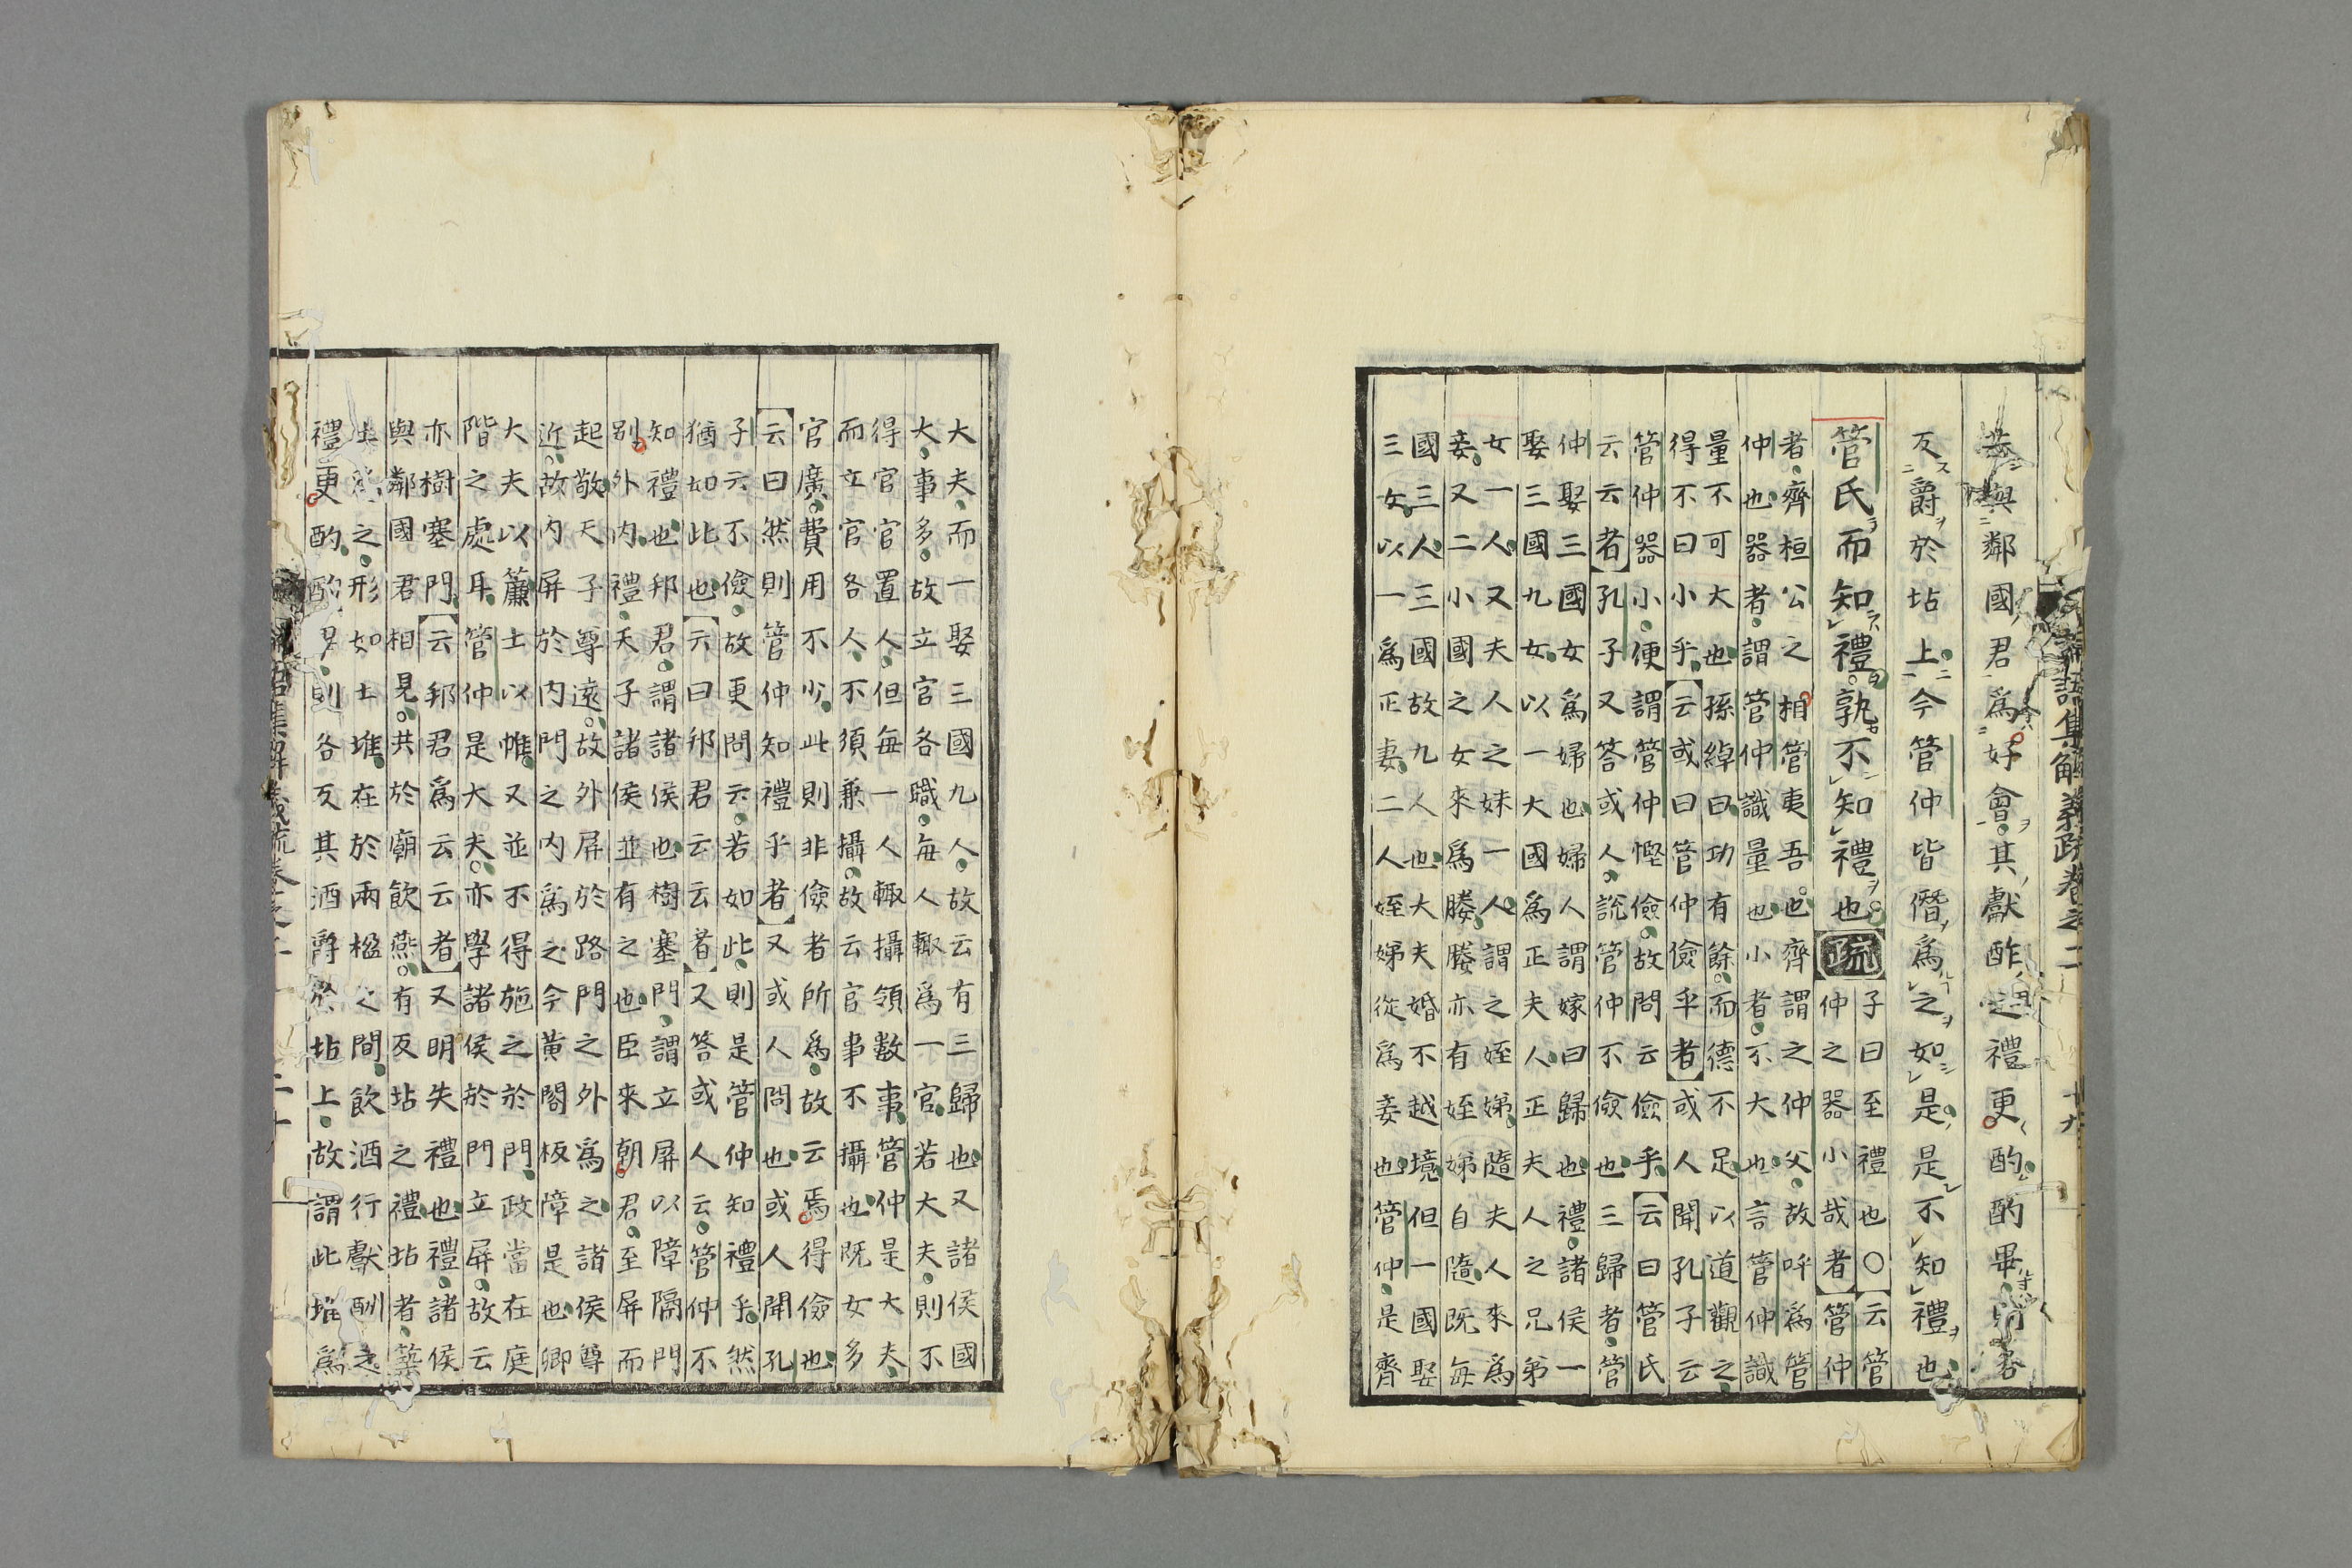 論語集解義疏卷之二 十九
與鄰國君爲好會其獻酢之禮更酌酌畢則各
反爵於坫上今管仲皆僭爲之如是是不知禮也
管氏而知禮孰不知禮也疏
子曰至禮也○云管
仲之器小哉者管仲
者齊桓公之相管夷吾也齊謂之仲父故呼爲管
仲也器者謂管仲識量也小者不大也言管仲識
量不可大也孫綽曰功有餘而德不足以道觀之
得不曰小乎云或曰管仲儉乎者或人聞孔子云
管仲器小便謂管仲慳儉故問云儉乎云曰管氏
云云者孔子又答或人說管仲不儉也三歸者管
仲娶三國女爲婦也婦人謂嫁曰歸也禮諸侯一
娶三國九女以一大國爲正夫人正夫人之兄弟
女一人又夫人之妹一人謂之姪娣隨夫人來爲
妾又二小國之女來爲媵媵亦有姪娣自隨既每
國三人三國故九人也大夫婚不越境但一國娶
三女以一爲正妻二人姪娣從爲妾也管仲是齊
大夫而一娶三國九人故云有三歸也又諸侯國
大事多故立官各職每人輙爲一官若大夫則不
得官官置人但每一人輙攝領數事管仲是大夫
而立官各人不須兼攝故云官事不攝也既女多
官廣費用不少此則非儉者所爲故云焉得儉也
云曰然則管仲知禮乎者又或人問也或人聞孔
子云不儉故更問云若如此則是管仲知禮乎然
猶如此也云曰邦君云云者又答或人云管仲不
知禮也邦君謂諸侯也樹塞門謂立屏以障隔門
別外內禮天子諸侯並有之也臣來朝君至屏而
起敬天子尊遠故外屏於路門之外爲之諸侯尊
近故內屏於內門之內爲之今黃閣板障是也卿
大夫以簾士以帷又並不得施之於門政當在庭
階之處耳管仲是大夫亦學諸侯於門立屏故云
亦樹塞門云邦君爲云云者又明失禮也禮諸侯
與鄰國君相見共於廟飲燕有反坫之禮坫者築
之形如土堆在於兩楹之間飲酒行獻酬之
禮更酌酌則各反其酒爵於坫上故謂此堆爲